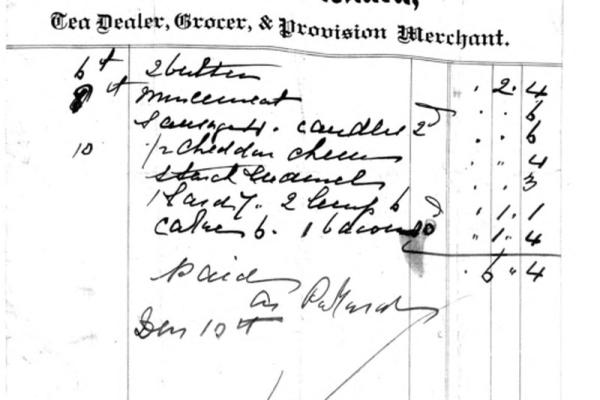 Tea Dealer, Grocer, & Provision Merchant.
6th 2 butter . 2. 4
th mincemeat . . 6
Sausages. candles 2 . . 6
10 1/2 cheddar cheese . " 4
starch . . 3
1 2 6 . 1. 1
cakes 6. 1 bacon 10 " 1. 4
. 6 " 4
Paid
Dec 10th